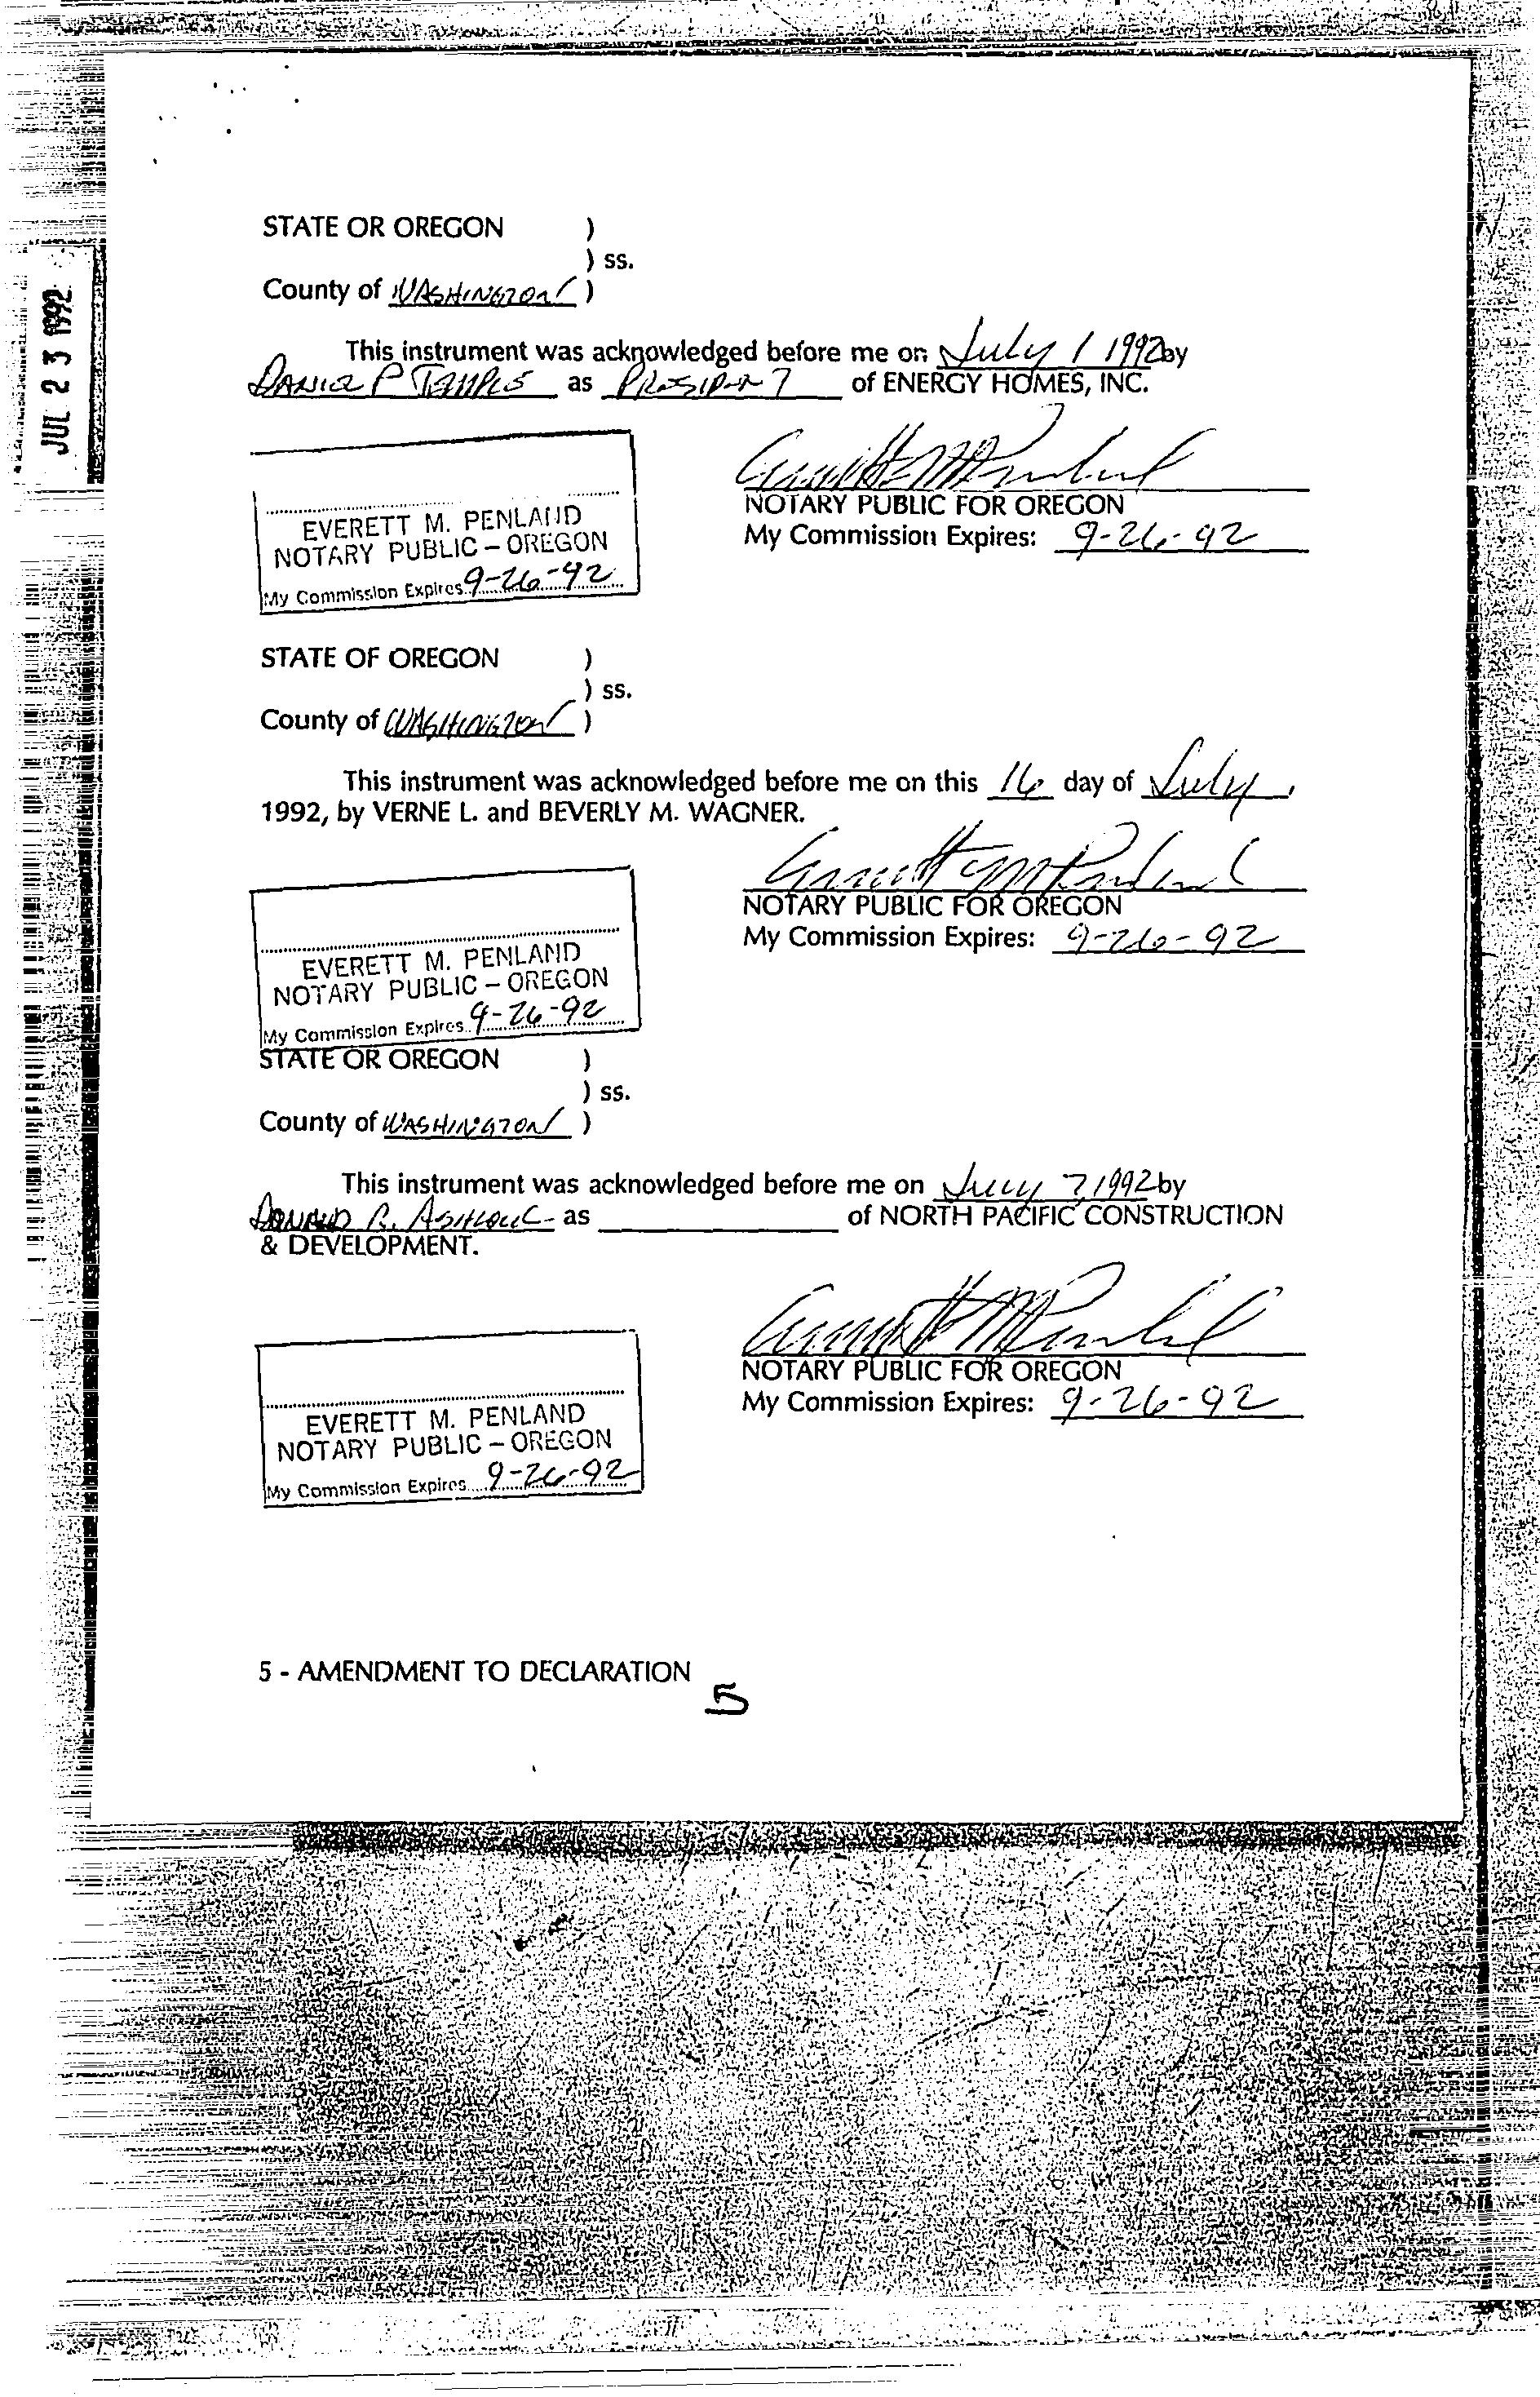 JUL 23 1992
STATE OR OREGON )
) ss.
County of WASHINGTON )
This instrument was acknowledged before me on July 1 1992 by
DANIEL P TEMPLE as PRESIDENT of ENERGY HOMES, INC.
Everett M Penland
NOTARY PUBLIC FOR OREGON
My Commission Expires: 9-26-92
EVERETT M. PENLAND
NOTARY PUBLIC – OREGON
My Commission Expires 9-26-92
STATE OF OREGON )
) ss.
County of WASHINGTON )
This instrument was acknowledged before me on this 16 day of July,
1992, by VERNE L. and BEVERLY M. WAGNER.
Everett M Penland
NOTARY PUBLIC FOR OREGON
My Commission Expires: 9-26-92
EVERETT M. PENLAND
NOTARY PUBLIC – OREGON
My Commission Expires 9-26-92
STATE OR OREGON )
) ss.
County of WASHINGTON )
This instrument was acknowledged before me on July 7, 1992 by
DONALD R. as of NORTH PACIFIC CONSTRUCTION
& DEVELOPMENT.
Everett M Penland
NOTARY PUBLIC FOR OREGON
My Commission Expires: 9-26-92
EVERETT M. PENLAND
NOTARY PUBLIC – OREGON
My Commission Expires 9-26-92
5 - AMENDMENT TO DECLARATION
5